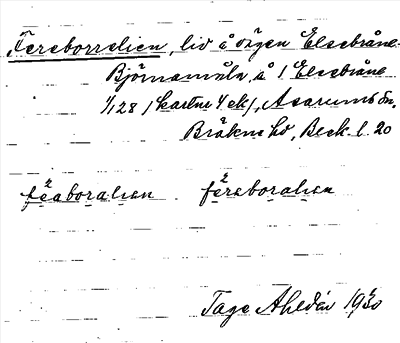 Fereborrelien, liv å vägen Elsebråne-
Björnamåla, å 1 Elsebråne
1/128 (kartur 4 ek), Asarums sn.
Bräkne hd, Beck l. 20
fèaboralıɛn fèrɛboralıɛn
Tage Ahldén 1930